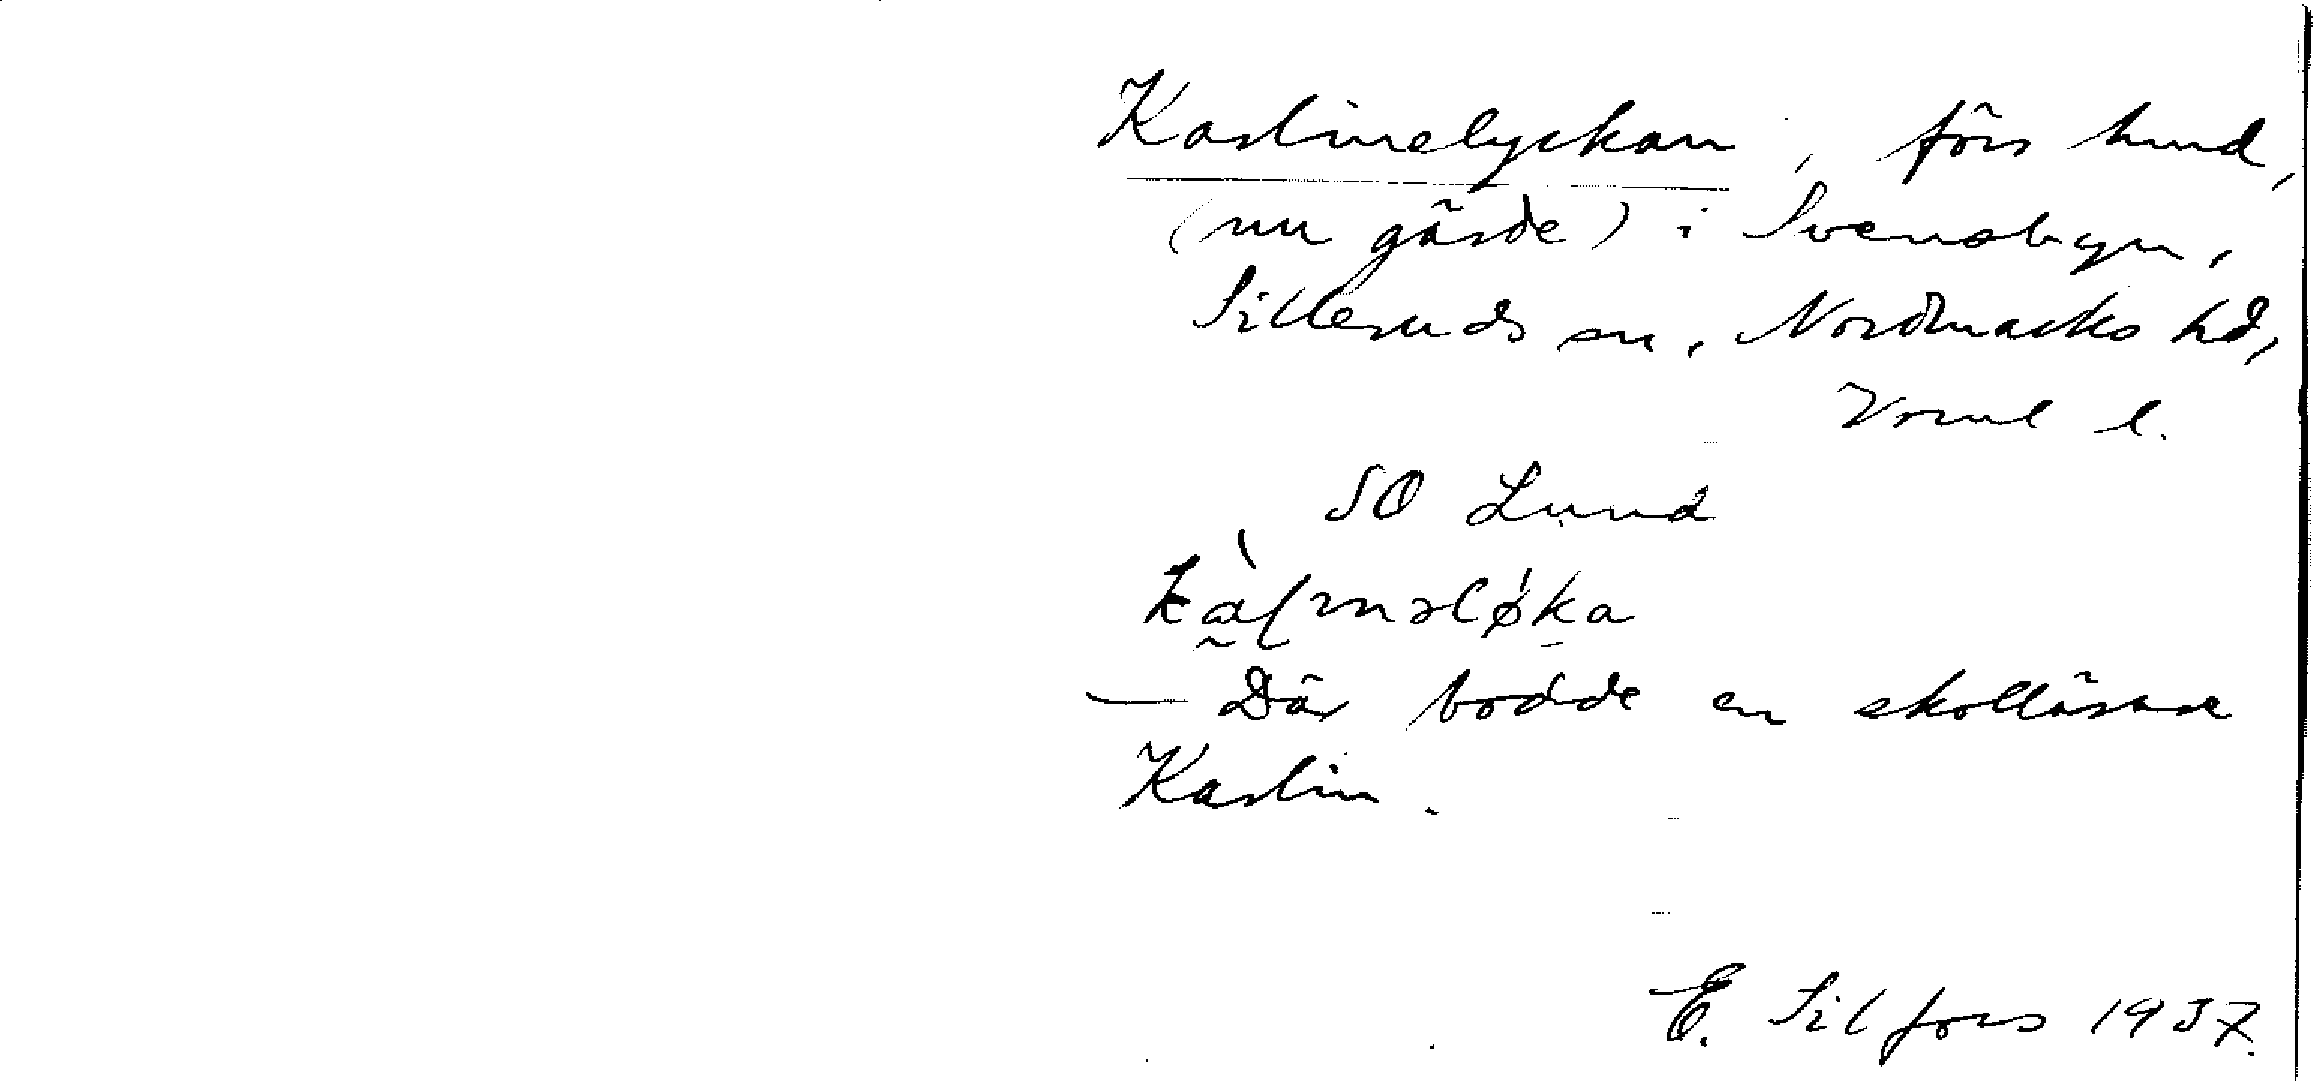 Karlinelyckan, förs lund,
(nu gärde) i Svensbyn,
Silleruds sn, Nordmarks hd,
Vrml l.
SO Lund
— Där bodde en skollärare
Karlin.
E. Silfors 1937.